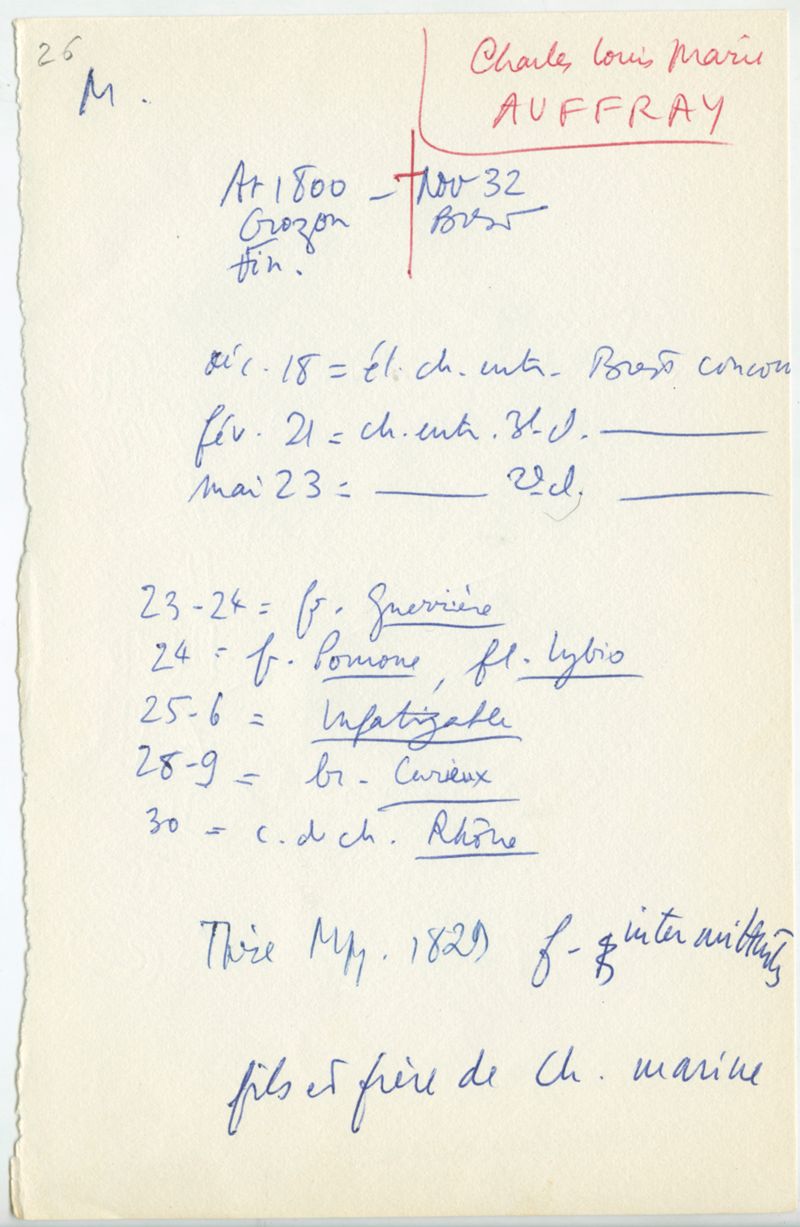 26
M.
Charles Louis Marie
AUFFRAY
At 1800 - † Nov 32
Crozon Brest
Fin.
déc. 18 = él. ch. entr. Brest concou
fév. 21 = ch. entr. 3e cl. ———
mai 23 = ——— 2e cl. ———
23-24 = fr. Guerrière
24 = fr. Pomone, fl. Lybio
25-6 = Infatigable
28-9 = br. Curieux
30 = c. de ch. Rhône
Thèse Mpy. 1829 f- intermittentes
fils et frère de ch. marine